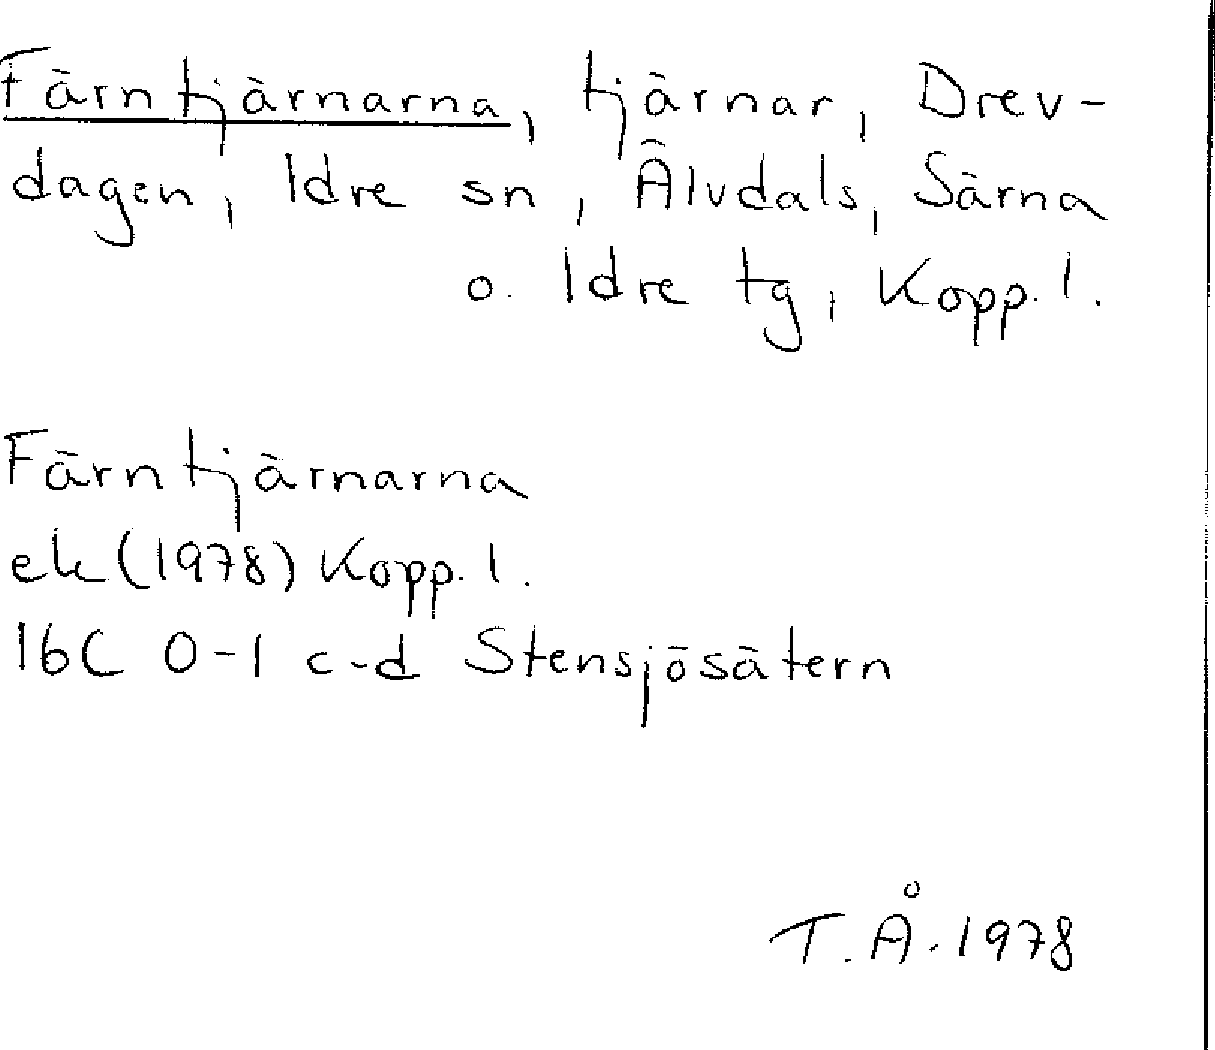 Färntjärnarna, tjärnar, Drev-
dagen, Idre sn, Älvdals, Särna
o. Idre tg, Kopp. l.
Färntjärnarna
ek (1978) Kopp. l.
16C 0-1 c-d Stensjösätern
T. Å. 1978